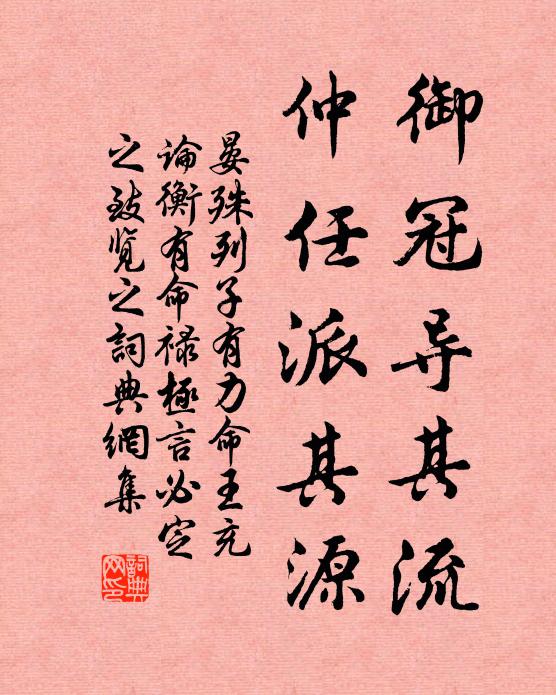 御冠导其流
仲任派其源
晏殊列子有力命王充
论衡有命禄极言必定
之致览之詞典網集
詞典网印